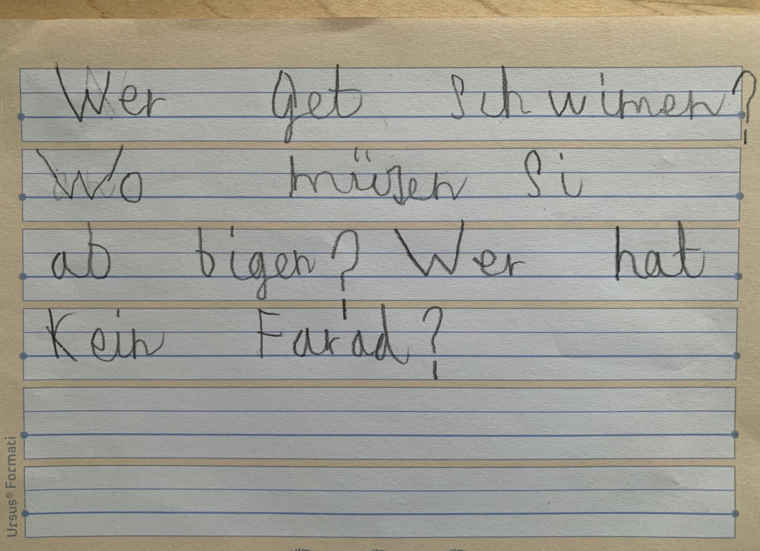 Wer get schwimen?
Wo müsen Si
ab bigen? Wer hat
Kein Farad?
Ursus® Formati